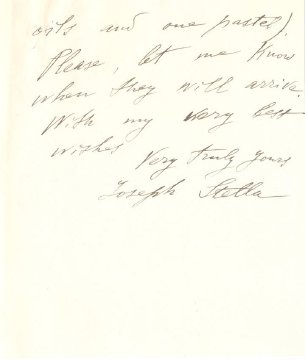 oils and one pastel)
Please, let me know
when they will arrive.
With my very best
wishes
Very truly yours
Joseph Stella